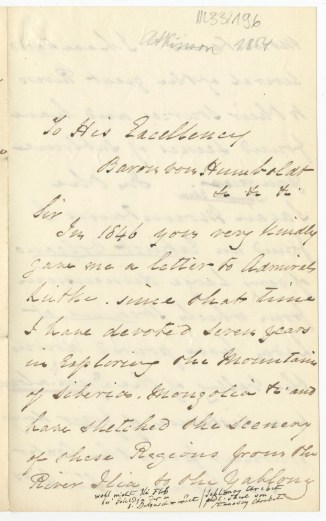 Atkinson
To His Excellency
Baron von Humboldt
&c &c &c
Sir
In 1846 you very kindly
gave me a letter to Admiral
Lütke. since that time
I have devoted seven years
in Exploring the Mountains
of Siberia. Mongolia &c and
have sketched the scenery
of these Regions from the
River Ilia to the Yablonoy